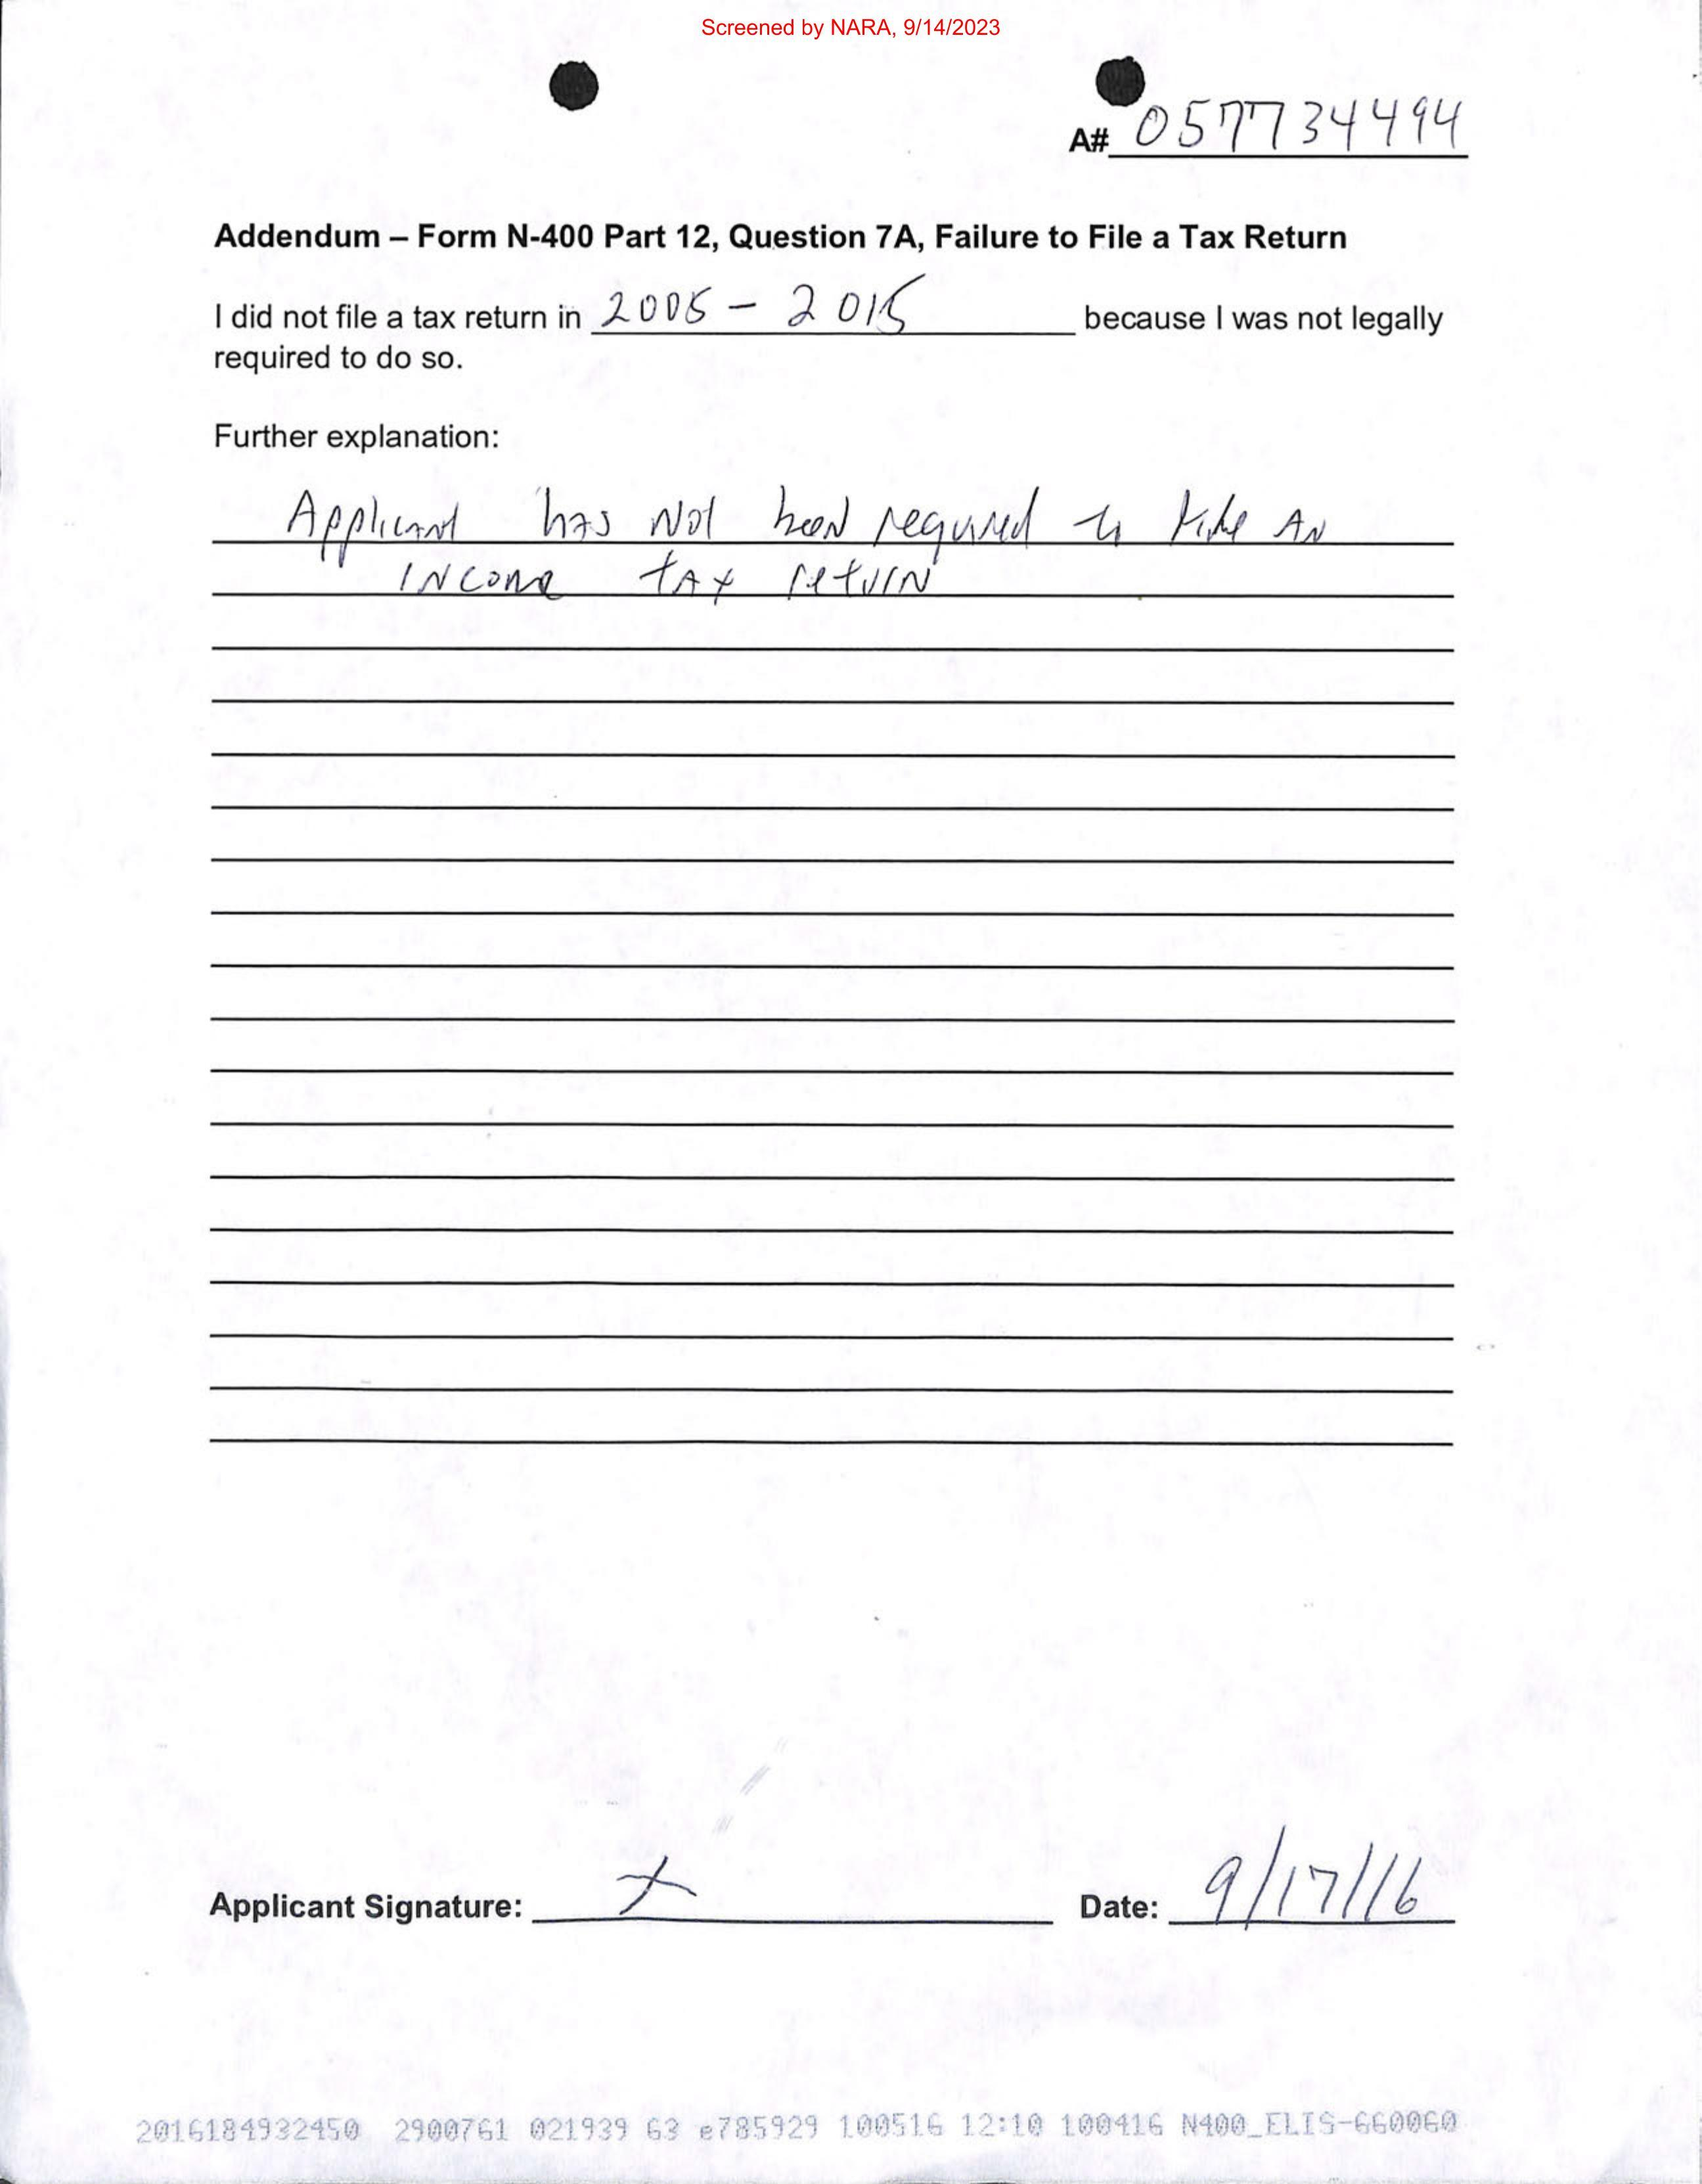 Screened by NARA, 9/14/2023
A# 057734494
Addendum – Form N-400 Part 12, Question 7A, Failure to File a Tax Return
I did not file a tax return in 2005 - 2015 because I was not legally
required to do so.
Further explanation:
Applicant has Not been required to File AN
INCOME tAx retUrN
Applicant Signature: X Date: 9/17/16
2016184932450 2900761 021939 63 e785929 100516 12:10 100416 N400_ELIS-660060